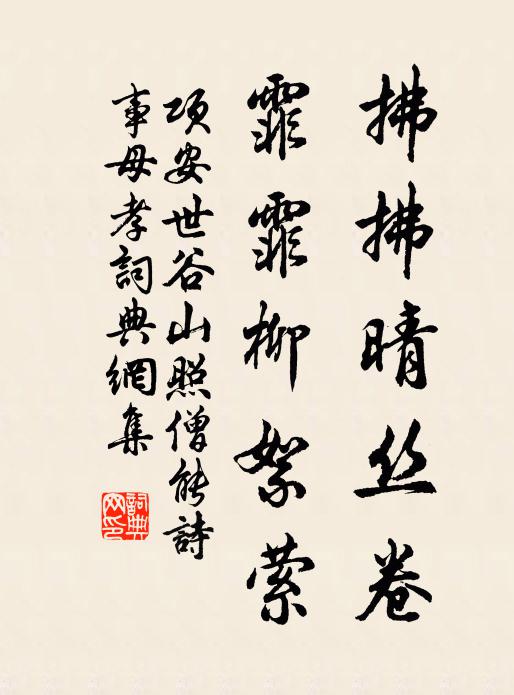 拂拂晴丝卷
霏霏柳絮萦
项安世谷山照僧能詩
事母孝詞典網集
詞典网印